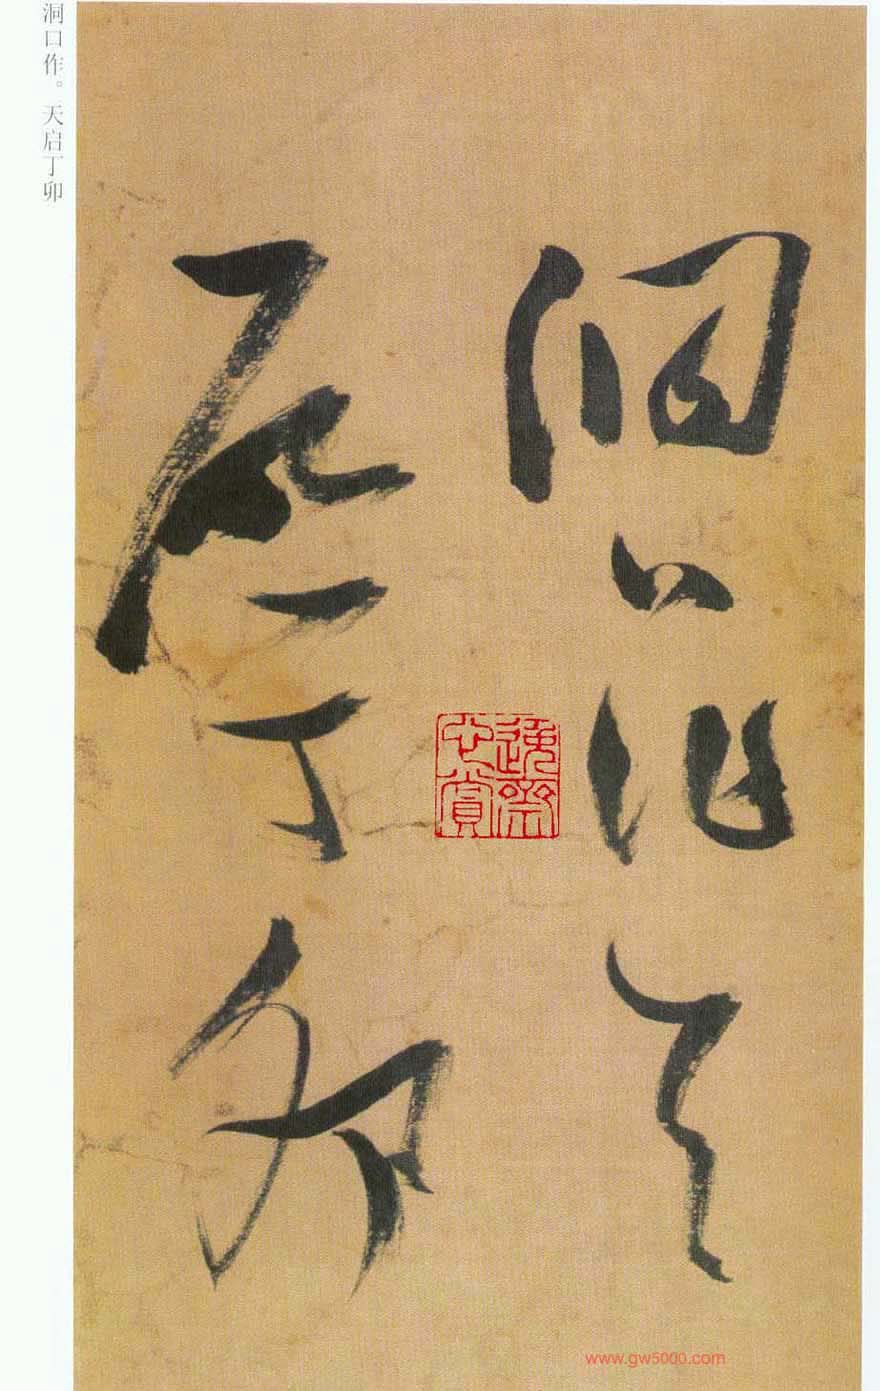 洞口作。天启丁卯
洞口作天
啟丁卯
逸齋
心賞
www.gw5000.com